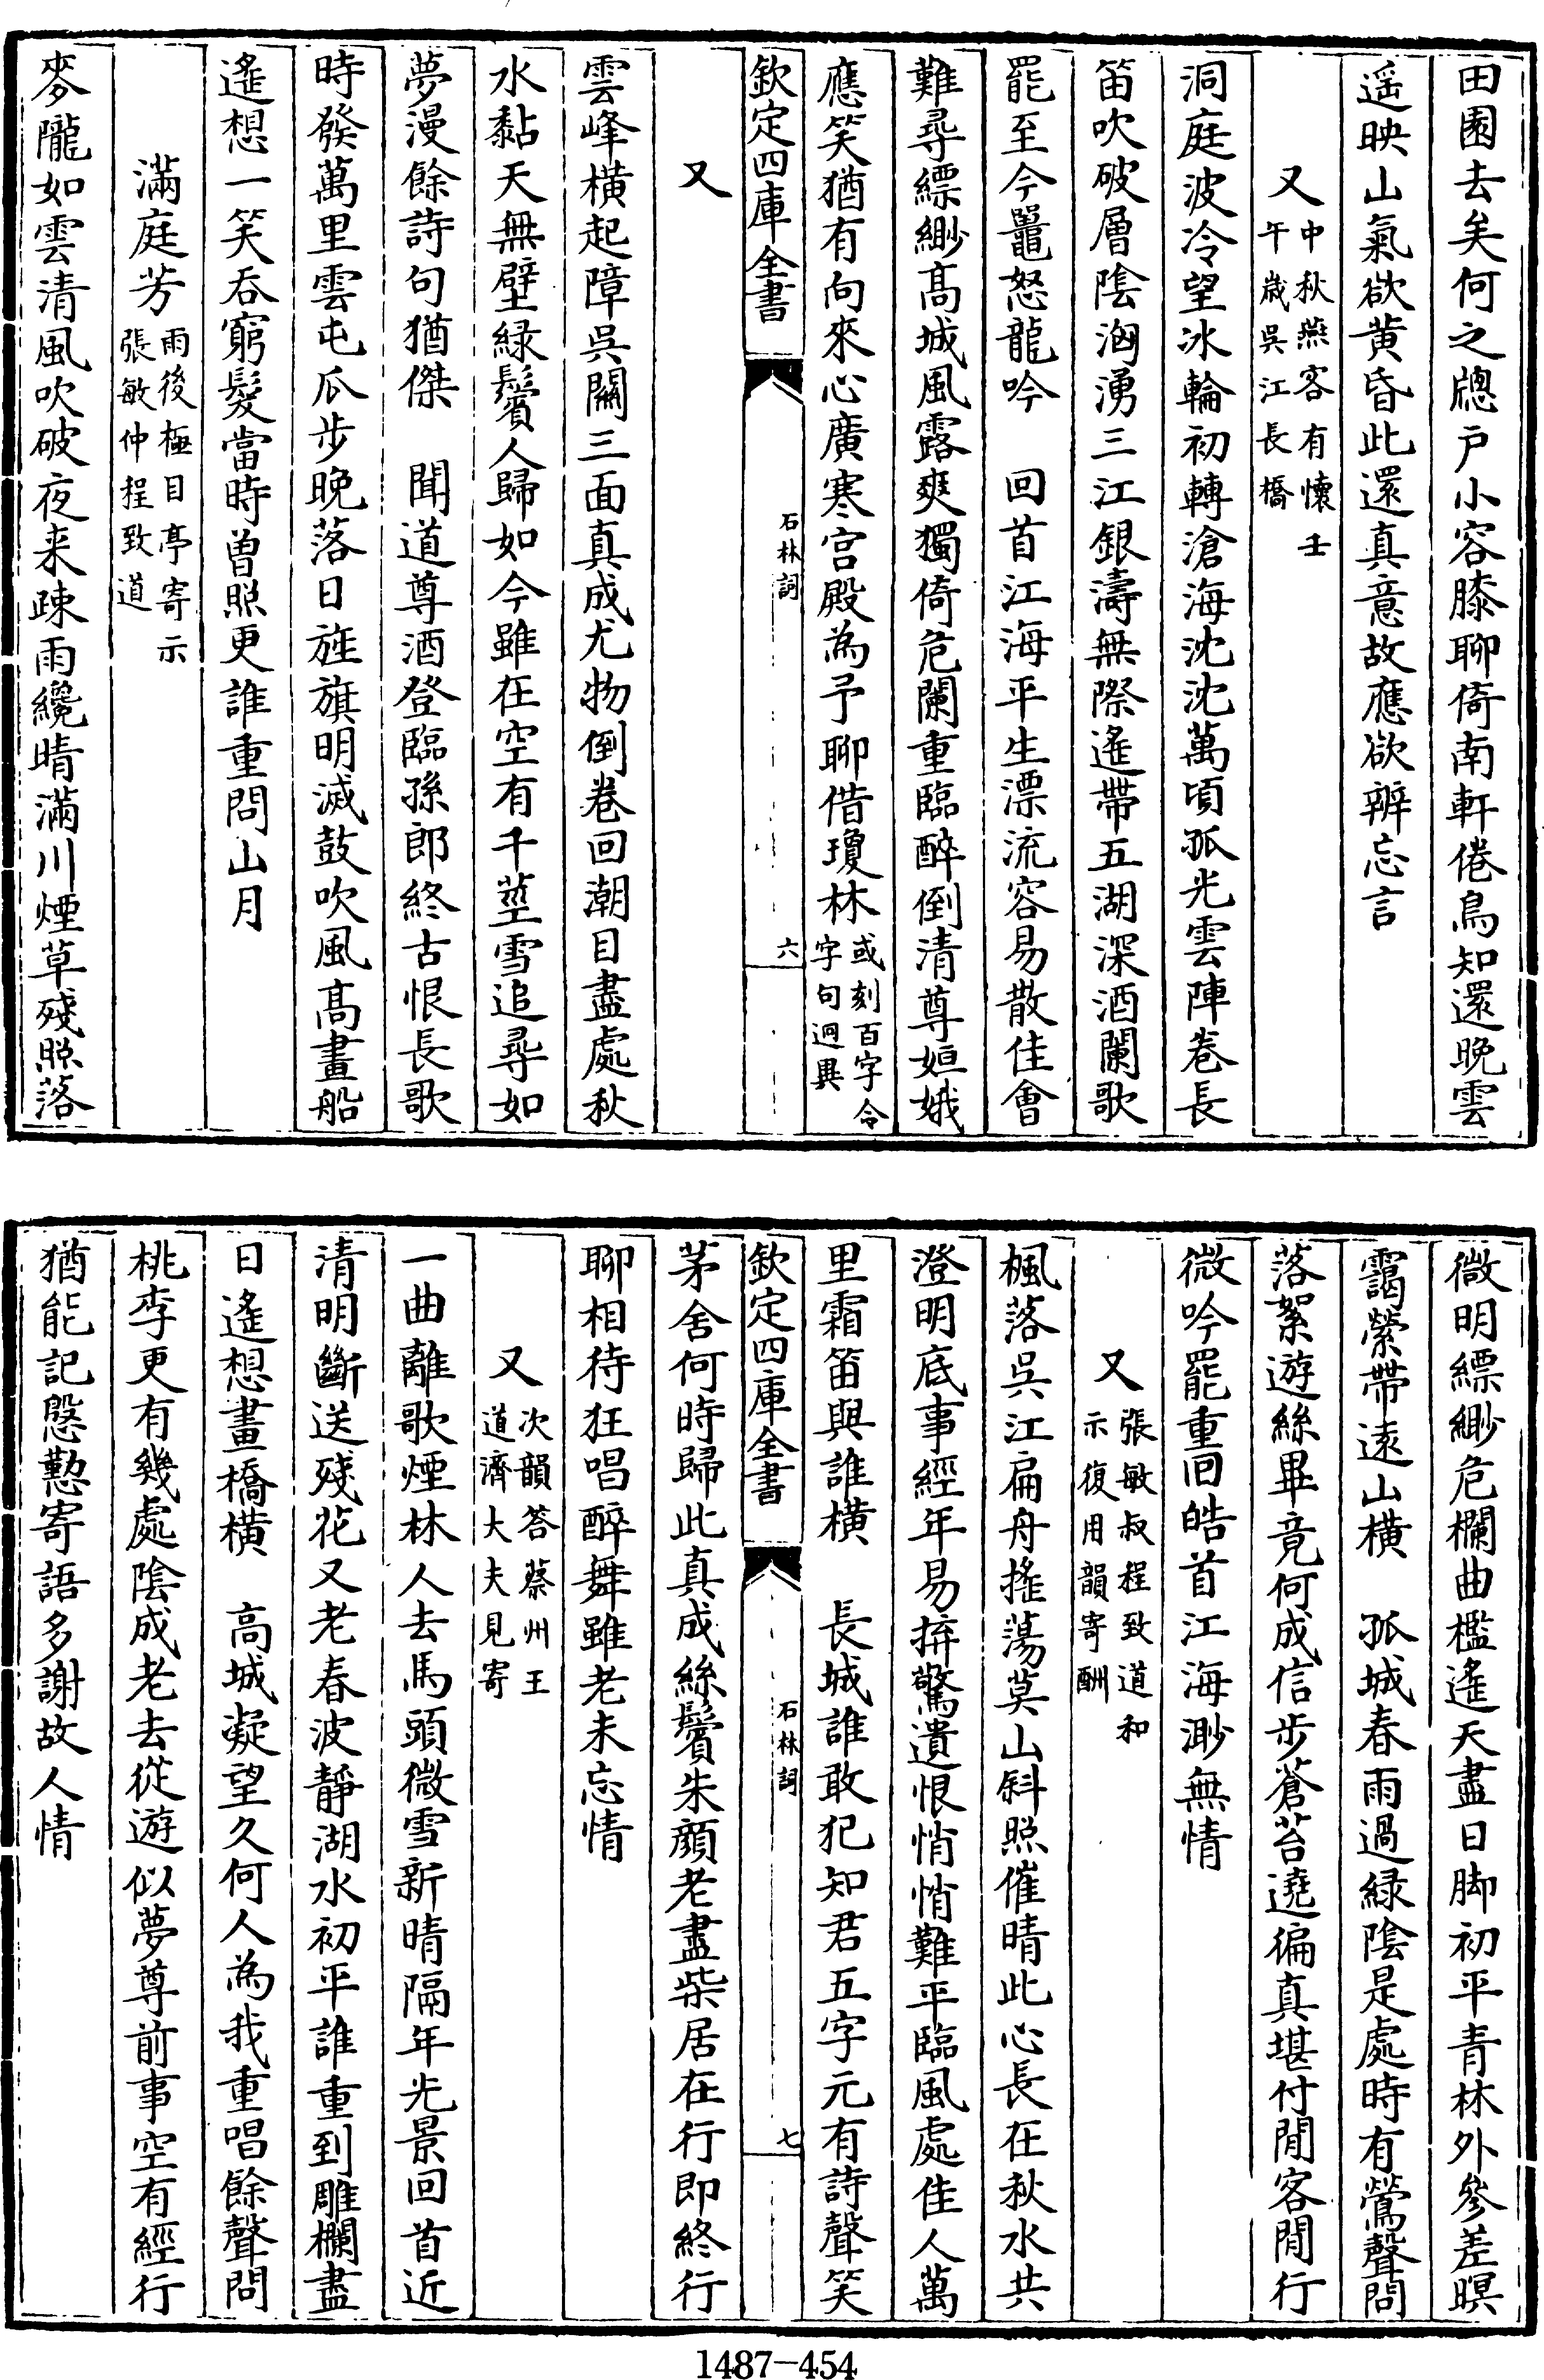 田園去矣何之牕戸小容膝聊倚南軒倦鳥知還晚雲
遥映山氣欲黄昏此還真意故應欲辨忘言
又中秋燕客有懷壬
午歲吳江長橋
洞庭波冷望冰輪初轉滄海沈沈萬頃孤光雲陣卷長
笛吹破層陰洶湧三江銀濤無際遙帶五湖深酒闌歌
罷至今鼉怒龍吟　回首江海平生漂流容易散佳會
難尋縹緲高城風露爽獨倚危闌重臨醉倒清尊姮娥
應笑猶有向來心廣寒宫殿為予聊借瓊林或刻百字令
字句迥異
欽定四庫全書
石林詞
六
又
雲峰橫起障吳關三面真成尤物倒卷回潮目盡處秋
水黏天無壁緑鬢人歸如今雖在空有千莖雪追尋如
夢漫餘詩句猶傑　聞道尊酒登臨孫郎終古恨長歌
時發萬里雲屯瓜步晚落日旌旗明滅鼓吹風高畫船
遙想一笑吞窮髮當時曾照更誰重問山月
滿庭芳雨後極目亭寄示
張敏仲程致道
麥隴如雲清風吹破夜来疎雨纔晴滿川煙草殘照落
微明縹緲危欄曲檻遙天盡日脚初平青林外參差暝
靄縈帶遠山橫　孤城春雨過緑陰是處時有鶯聲問
落絮遊絲畢竟何成信步蒼苔遶徧真堪付閒客閒行
微吟罷重回皓首江海渺無情
又張敏叔程致道和
示復用韻寄酬
楓落吳江扁舟搖蕩莫山斜照催晴此心長在秋水共
澄明底事經年易拚驚遺恨悄悄難平臨風處佳人萬
里霜笛與誰橫　長城誰敢犯知君五字元有詩聲笑
欽定四庫全書
石林詞
七
茅舍何時歸此真成絲鬢朱顔老盡柴居在行即終行
聊相待狂唱醉舞雖老未忘情
又次韻答蔡州王
道濟大夫見寄
一曲離歌煙林人去馬頭微雪新晴隔年光景回首近
清明斷送殘花又老春波靜湖水初平誰重到雕欄盡
日遙想畫橋橫　高城凝望久何人為我重唱餘聲問
桃李更有幾處陰成老去從遊似夢尊前事空有經行
猶能記慇懃寄語多謝故人情
1487—454